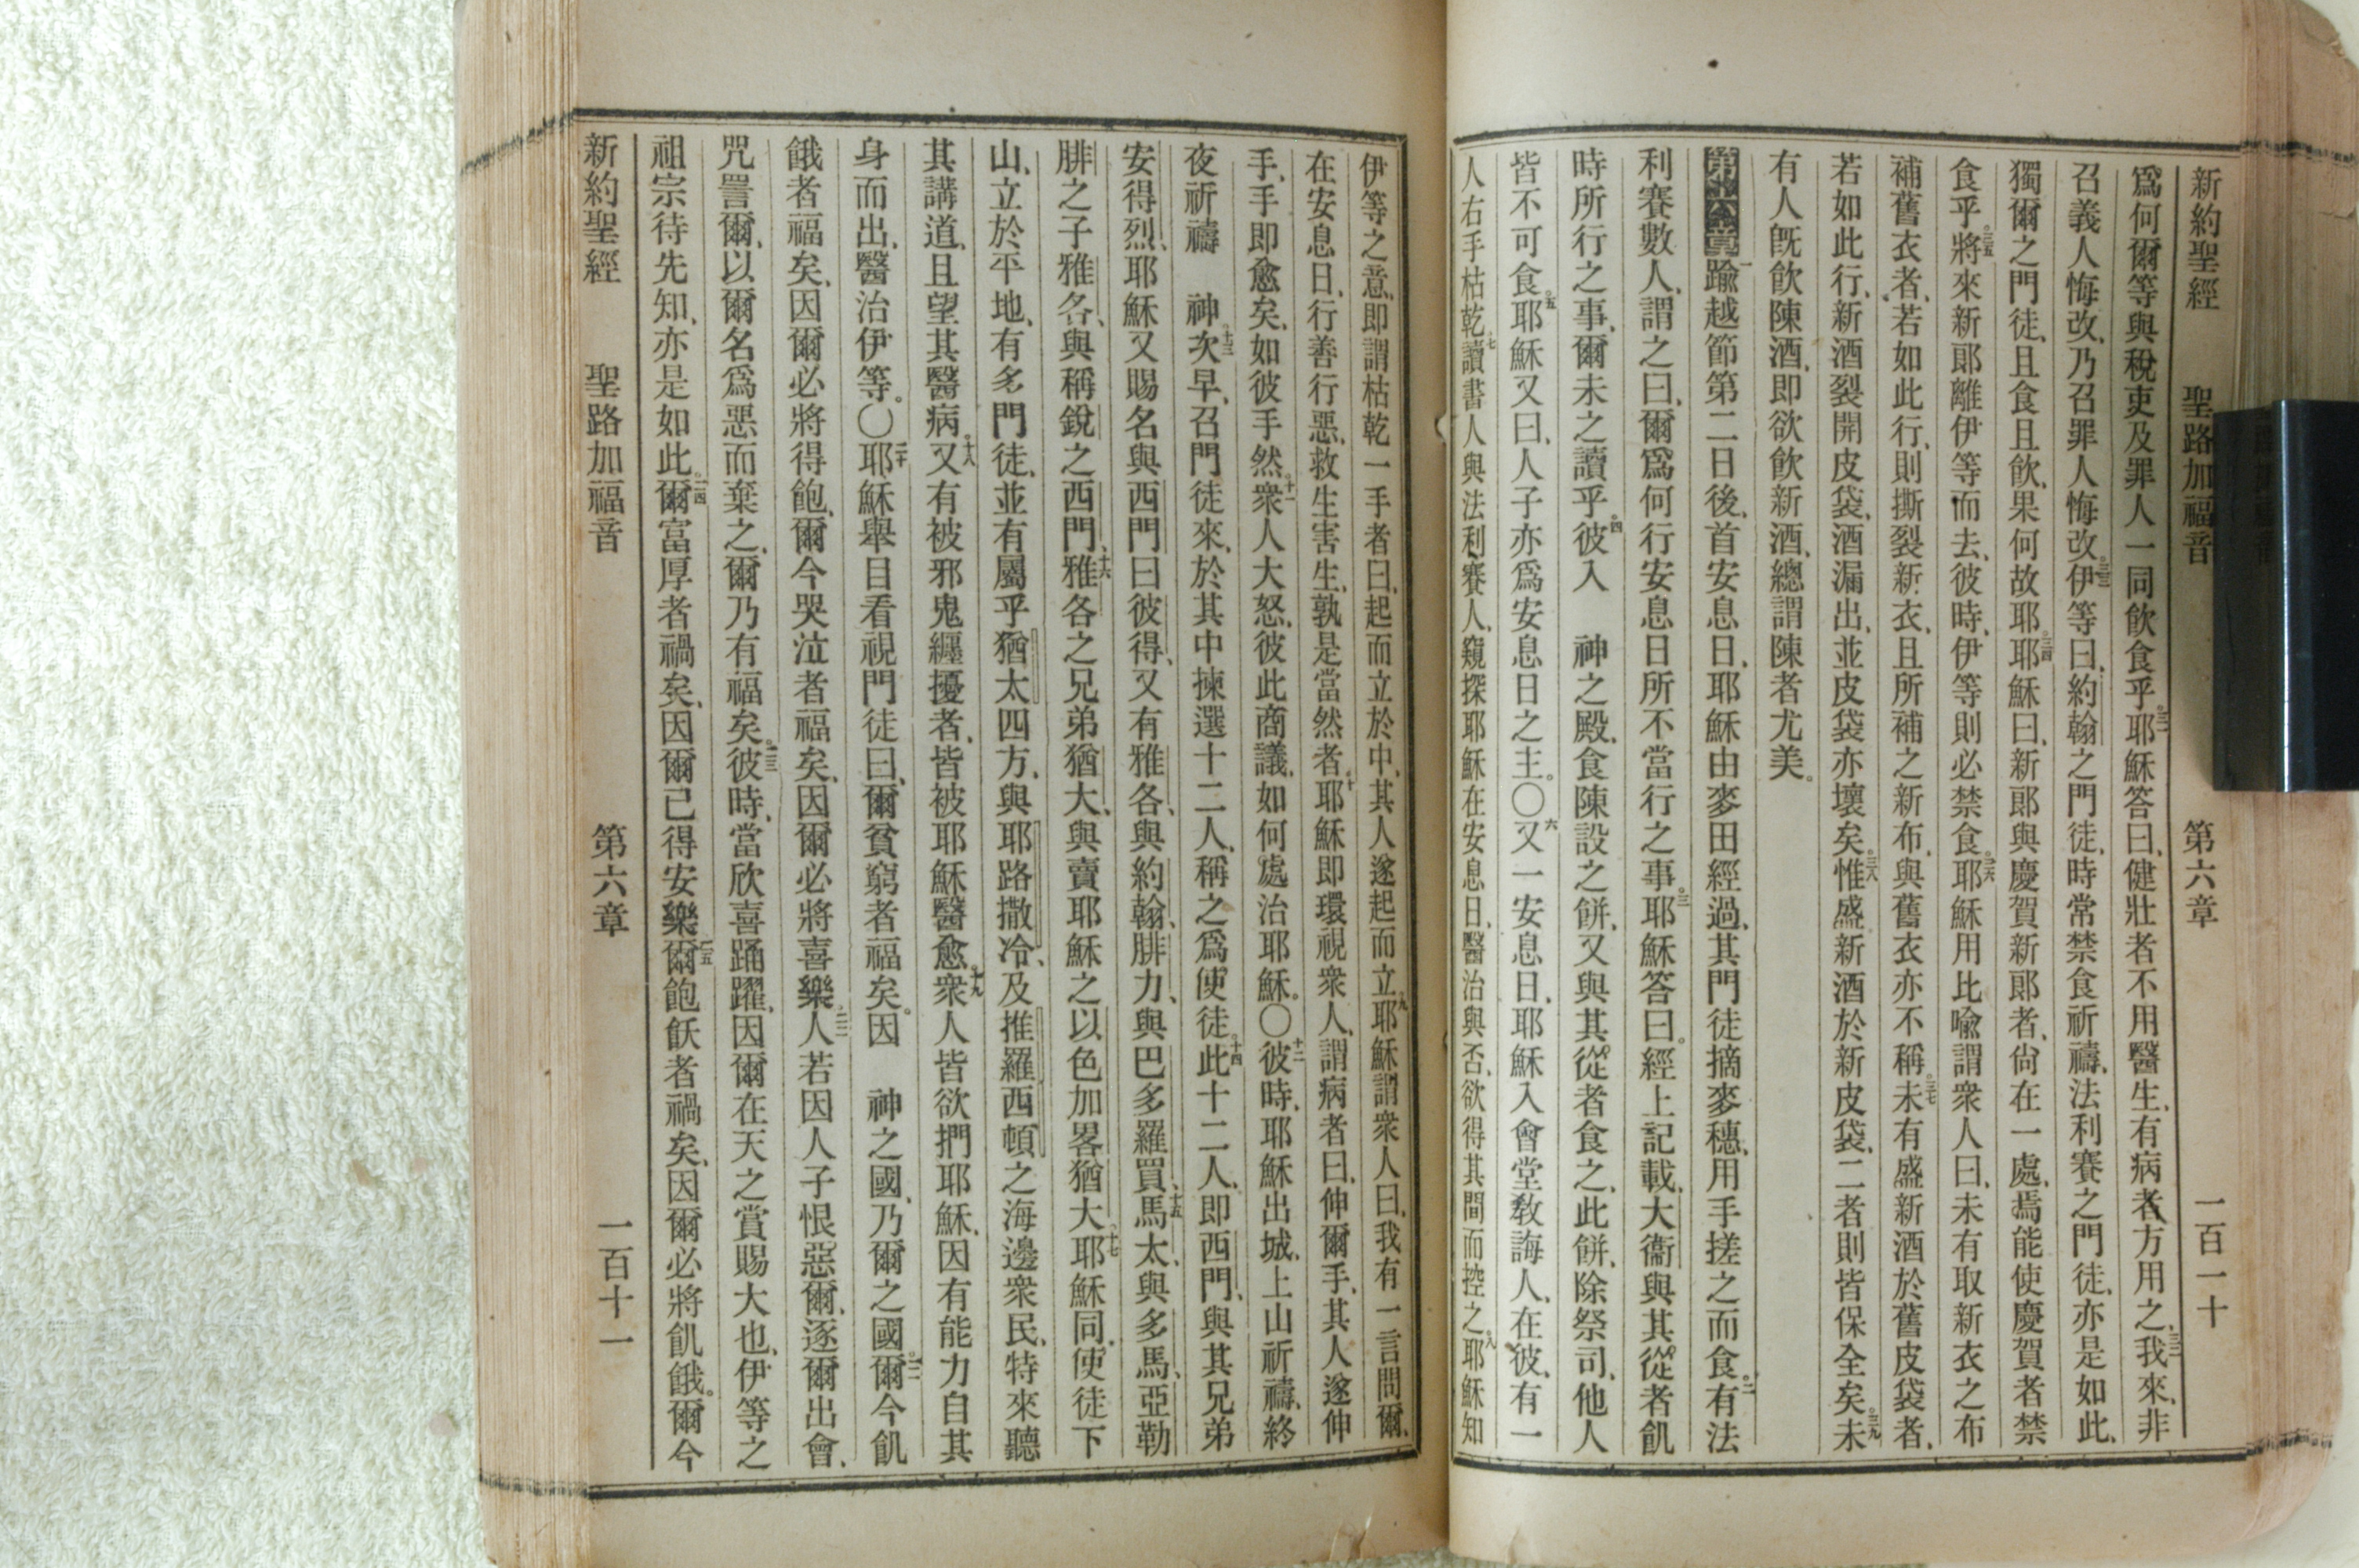 新約聖經 聖路加福音 第六章 一百一十
爲何爾等與稅吏及罪人一同飲食乎。三一耶穌答曰、健壯者不用醫生、有病者方用之、三二我來、非
召義人悔改、乃召罪人悔改。三三伊等曰、約翰之門徒、時常禁食祈禱、法利賽之門徒、亦是如此、
獨爾之門徒、且食且飲、果何故耶。三四耶穌曰、新郎與慶賀新郎者、尙在一處、焉能使慶賀者禁
食乎。三五將來新郎離伊等而去、彼時、伊等則必禁食。三六耶穌用比喩謂衆人曰、未有取新衣之布
補舊衣者、若如此行、則撕裂新衣、且所補之新布、與舊衣亦不稱。三七未有盛新酒於舊皮袋者、
若如此行、新酒裂開皮袋、酒漏出、並皮袋亦壞矣。三八惟盛新酒於新皮袋、二者則皆保全矣。三九未
有人旣飲陳酒、卽欲飲新酒、總謂陳者尤美。
第六章一踰越節第二日後、首安息日、耶穌由麥田經過、其門徒摘麥穗、用手搓之而食。二有法
利賽數人、謂之曰、爾爲何行安息日所不當行之事。三耶穌答曰。經上記載、大衞與其從者飢
時所行之事、爾未之讀乎。四彼入 神之殿、食陳設之餠、又與其從者食之、此餠、除祭司、他人
皆不可食。五耶穌又曰、人子亦爲安息日之主。〇六又一安息日、耶穌入會堂敎誨人、在彼、有一
人右手枯乾。七讀書人與法利賽人、窺探耶穌在安息日、醫治與否、欲得其間而控之。八耶穌知
伊等之意、卽謂枯乾一手者曰、起而立於中、其人遂起而立。九耶穌謂衆人曰、我有一言問爾、
在安息日、行善行惡、救生害生、孰是當然者。十耶穌卽環視衆人、謂病者曰、伸爾手、其人遂伸
手、手卽愈矣、如彼手然。十一衆人大怒、彼此商議、如何處治耶穌。〇十二彼時、耶穌出城、上山祈禱、終
夜祈禱 神。十三次早、召門徒來、於其中揀選十二人、稱之爲使徒。十四此十二人、卽西門、與其兄弟
安得烈、耶穌又賜名與西門曰彼得、又有雅各、與約翰、腓力、與巴多羅買、十五馬太、與多馬、亞勒
腓之子雅各、與稱銳之西門、十六雅各之兄弟猶大、與賣耶穌之以色加畧猶大。十七耶穌同使徒下
山、立於平地、有多門徒、並有屬乎猶太四方、與耶路撒冷、及推羅西頓之海邊衆民、特來聽
其講道、且望其醫病。十八又有被邪鬼纏擾者、皆被耶穌醫愈。十九衆人皆欲捫耶穌、因有能力自其
身而出、醫治伊等。〇二十耶穌舉目看視門徒曰、爾貧窮者福矣。因 神之國、乃爾之國。二一爾今飢
餓者福矣、因爾必將得飽、爾今哭泣者福矣、因爾必將喜樂。二二人若因人子恨惡爾、逐爾出會、
咒詈爾、以爾名爲惡而棄之、爾乃有福矣。二三彼時、當欣喜踊躍、因爾在天之賞賜大也、伊等之
祖宗待先知、亦是如此。二四爾富厚者禍矣、因爾已得安樂。二五爾飽飫者禍矣、因爾必將飢餓。爾今
新約聖經 聖路加福音 第六章 一百十一